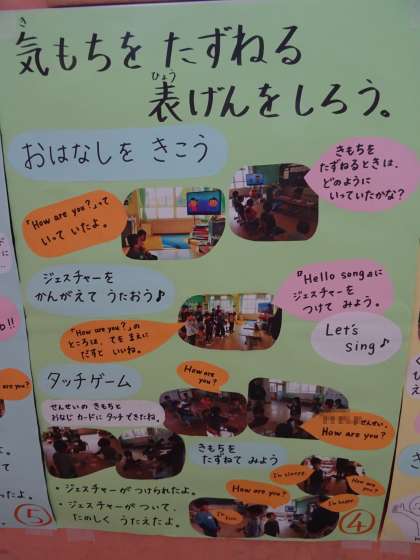 気もちを たずねる
き
表げんをしろう。
ひょう
おはなしを きこう
きもちを
たずねるときは、
どのように
いっていたかな?
「How are you?」って
いっていたよ。
ジェスチャーを
かんがえて うたおう♪
『Hello song』に
ジェスチャーを
つけて みよう。
「How are you?」の
ところは、てを まえに
だすと いいね。
Let's
sing♪
タッチゲーム
How are
you?
せんせいの きもちと
おなじ カードに タッチできたね。
せんせい、
How are you?
きもちを
たずねて みよう
How are you?
How are
you?
I'm happy.
I'm fine.
・ジェスチャーが つけられたよ。
・ジェスチャーが ついて、
たのしく うたえたよ。
⑤
④
are you?